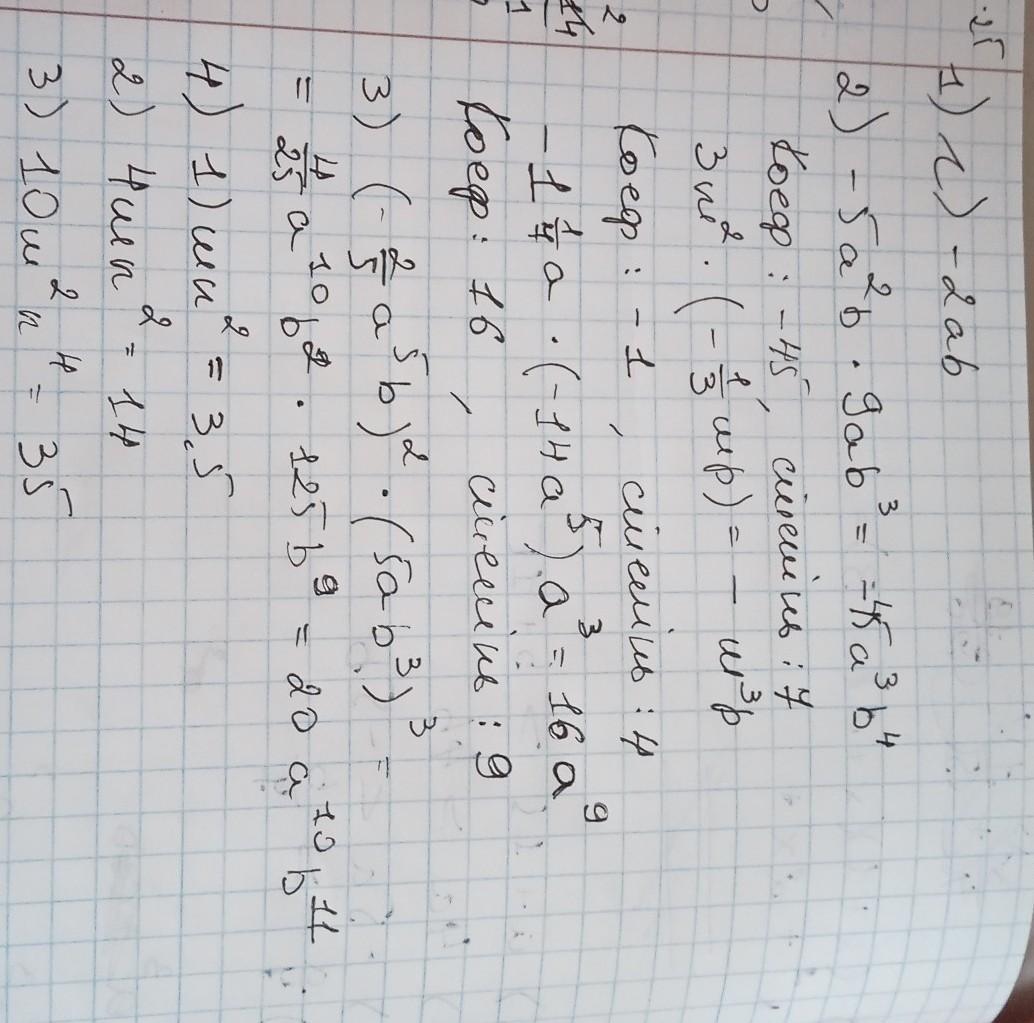 1) г) -2ab
2) -5a²b · 9ab³ = -45a³b⁴
Коеф: -45, степінь: 7
3m² · (-1/3mp) = - m³p
Коеф: -1, степінь: 4
-1 1/7a · (-14a⁵) a³ = 16a⁹
Коеф: 16, степінь: 9
3) (-2/5a⁵b)² · (5ab³)³ =
= 4/25a¹⁰b² · 125b⁹ = 20a¹⁰b¹¹
4) 1) mn² = 3,5
2) 4mn² = 14
3) 10m²n⁴ = 35